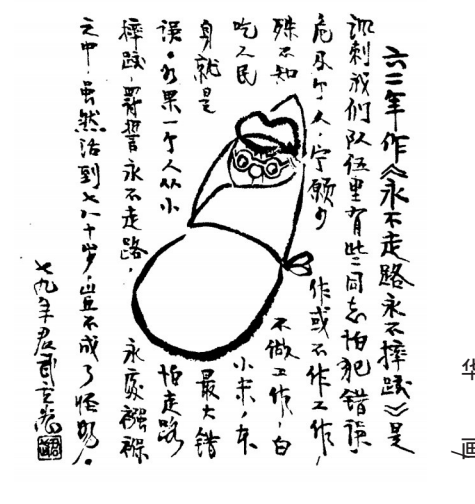 六二年作《永不走路永不摔跤》是
讽刺我们队伍里有些同志怕犯错误，
危及个人，宁愿少作或不作工作，
殊不知不做工作，白
吃人民小米，本
身就是最大错
误。如果一个人从小怕走路
摔跤，罚誓永不走路，永处襁褓
之中，虽然活到七八十岁，岂不成了怪物。
七九年君武
华
画